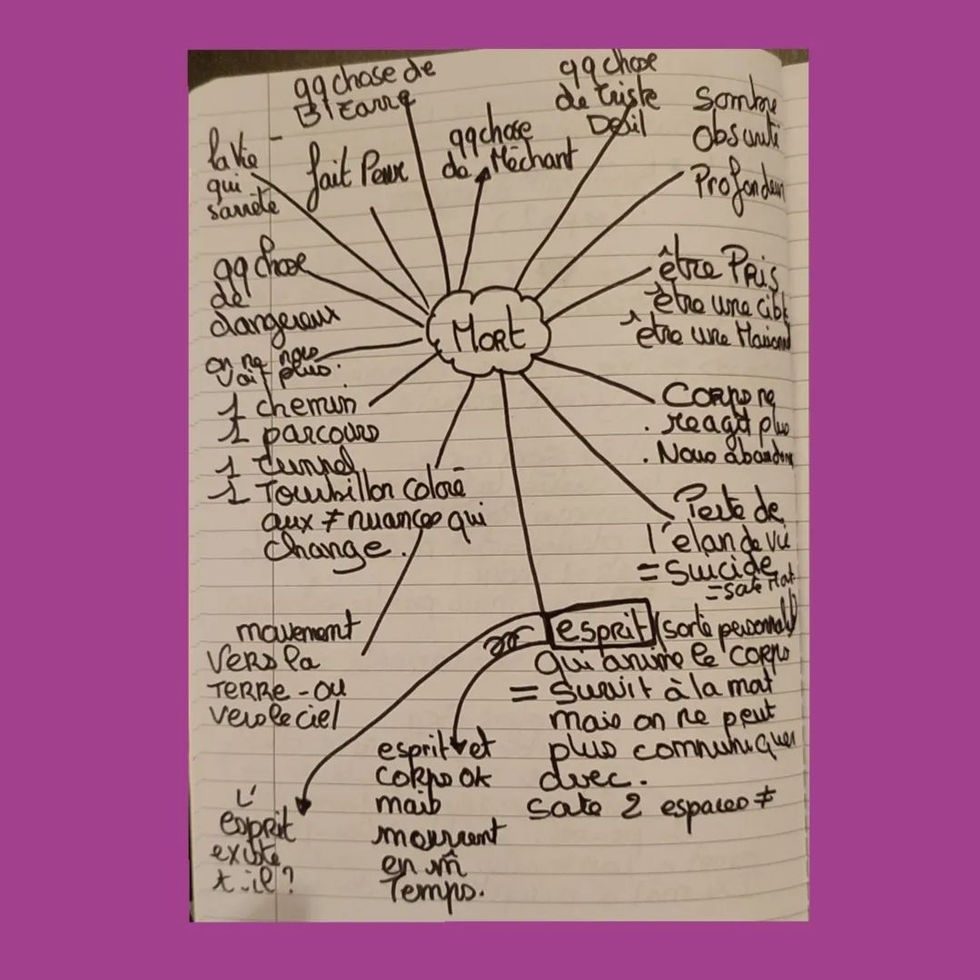 qq chose de
Bizarre
qq chose
de triste
Deuil
Sombre
obscurité
Profondeur
la vie
qui
s'arrête
fait Peur
qq chose
de Méchant
qq chose
de
dangereux
être Pris
être une cible
être une Maison
on ne nous
voit plus.
MORT
1 chemin
1 parcours
1 tunnel
1 Tourbillon coloré
aux ≠ nuances qui
change.
Corps ne
. reagit plus
. Nous abandonne
Perte de
l'élan de vie
= Suicide
mouvement
vers la
TERRE - ou
vers le ciel
esprit (sorte
qui anime le corps
= Survit à la mort
mais on ne peut
plus communiquer
avec.
sorte 2 espaces ≠
esprit et
corps ok
mais
meurent
en m̂
Temps.
L'
esprit
existe
t-il ?